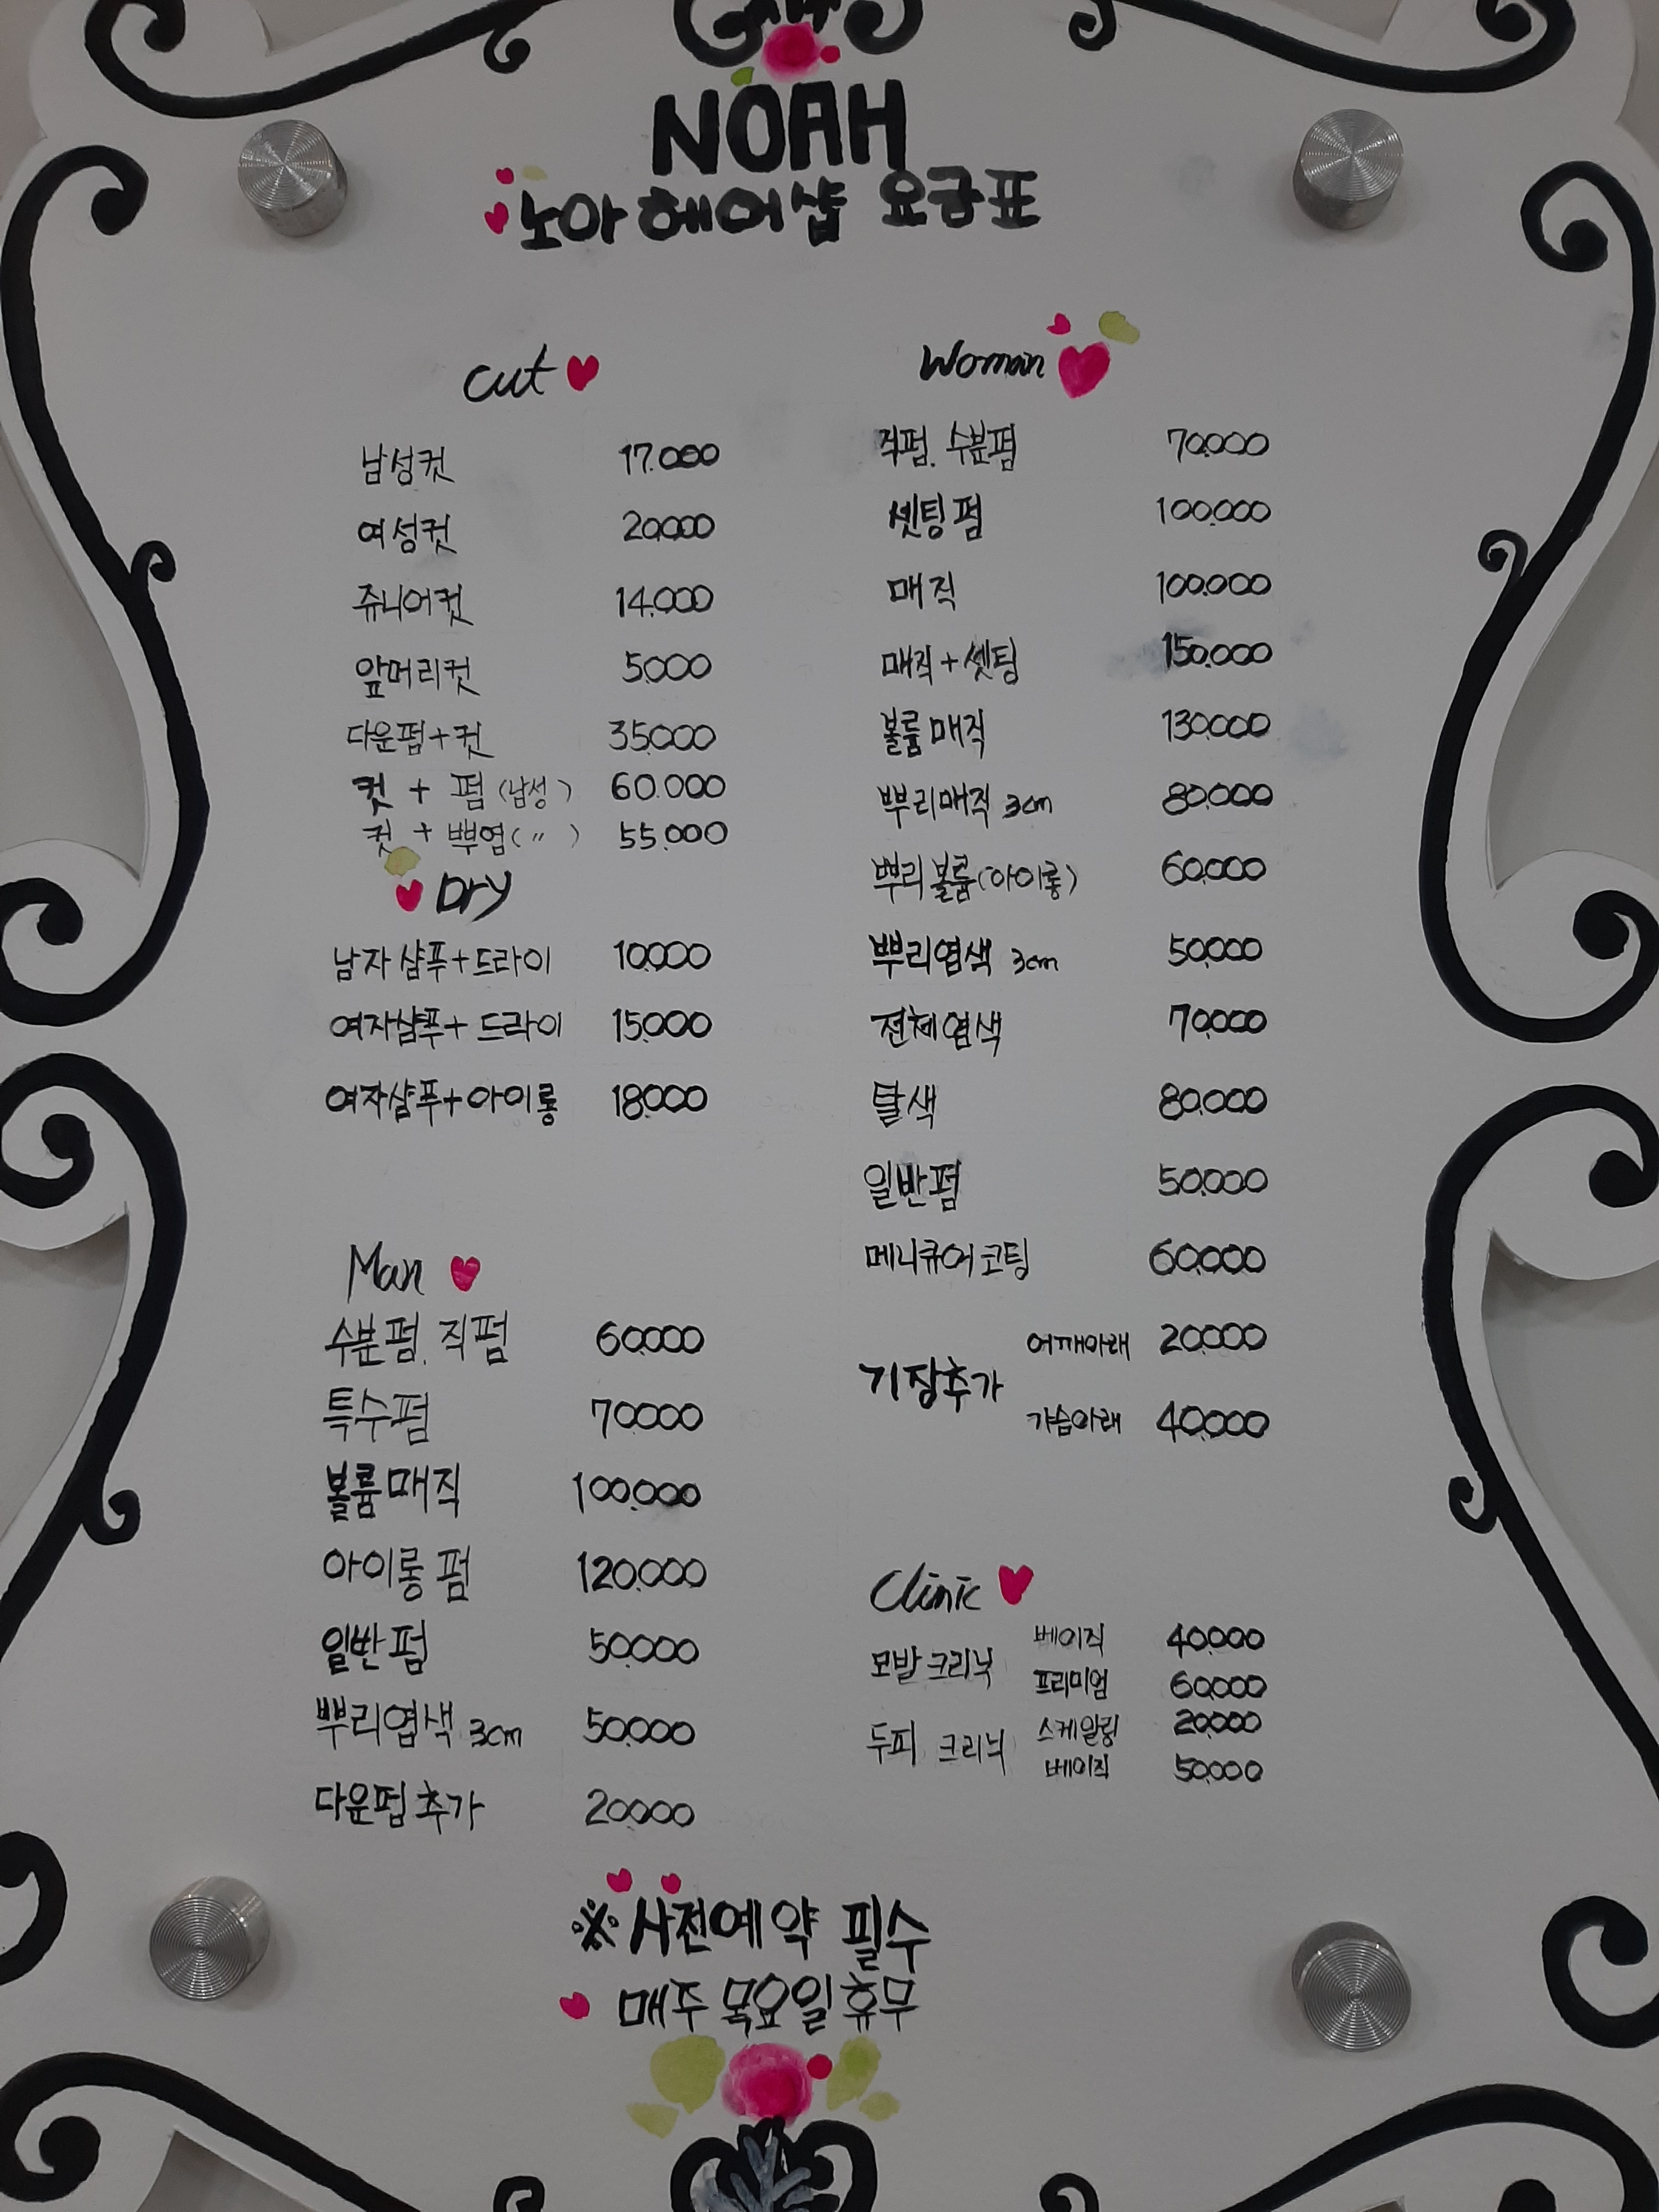 NOAH
노아헤어샵 요금표
cut
남성컷 17.000
여성컷 20.000
쥬니어컷 14.000
앞머리컷 5.000
다운펌+컷 35.000
컷 + 펌 (남성) 60.000
컷 + 뿌염 (〃) 55.000
Dry
남자샴푸+드라이 10.000
여자샴푸+드라이 15.000
여자샴푸+아이롱 18.000
Man
수분펌. 직펌 60.000
특수펌 70.000
볼륨매직 100.000
아이롱펌 120.000
일반펌 50.000
뿌리염색 3cm 50.000
다운펌추가 20.000
Woman
직펌. 수분펌 70.000
셋팅펌 100.000
매직 100.000
매직+셋팅 150.000
볼륨매직 130.000
뿌리매직 3cm 80.000
뿌리볼륨(아이롱) 60.000
뿌리염색 3cm 50.000
전체염색 70.000
탈색 80.000
일반펌 50.000
메니큐어코팅 60.000
기장추가 어깨아래 20.000
가슴아래 40.000
Clinic
모발크리닉 베이직 40.000
프리미엄 60.000
두피 크리닉 스케일링 20.000
베이직 50.000
※사전예약 필수
매주 목요일 휴무